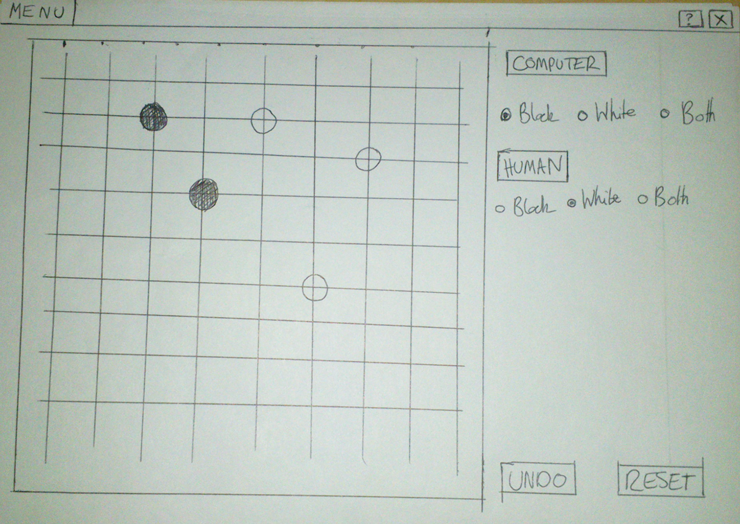 MENU
? X
COMPUTER
Black White Both
HUMAN
Black White Both
UNDO RESET